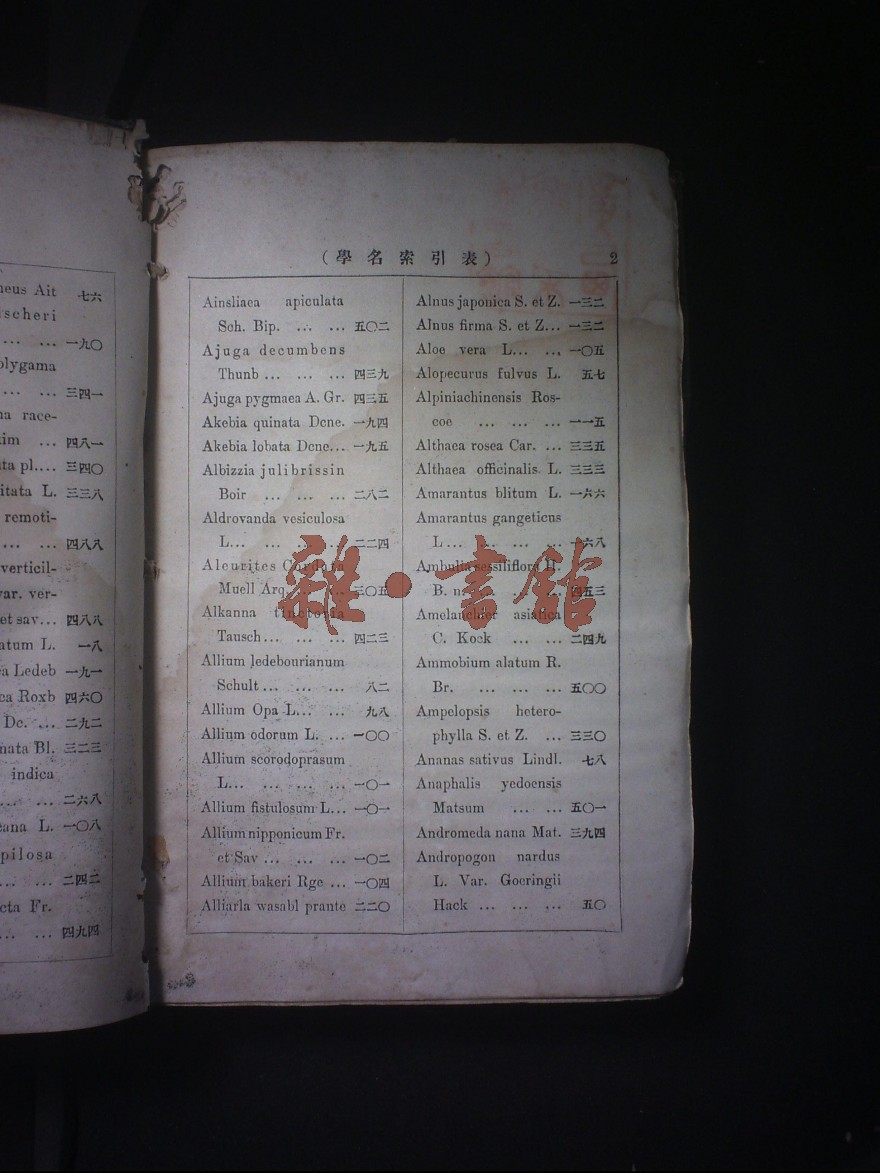 neus Ait 七六
scheri
... ... 一九〇
olygama
... ... 三四一
na race-
im ... 四八一
ta pl.... 三四〇
itata L. 三三八
remoti-
... ... 四八八
verticil-
var. ver-
et sav... 四八八
atum L. 一八
a Ledeb 一九一
ca Roxb 四六〇
Dc. ... 二九二
nata Bl. 三二三
indica
... ... 二六八
cana L. 一〇八
pilosa
... ... 二四二
cta Fr.
... ... 四九四
(學名索引表) 2
Ainsliaea apiculata
Sch. Bip. ... ... 五〇二
Ajuga decumbens
Thunb ... ... ... 四三九
Ajuga pygmaea A. Gr. 四三五
Akebia quinata Dcne. 一九四
Akebia lobata Dcne... 一九五
Albizzia julibrissin
Boir ... ... ... 二八二
Aldrovanda vesiculosa
L... ... ... ... 二二四
Aleurites Cordata
Muell Arg. ... ... 三〇五
Alkanna tinctoria
Tausch ... ... ... 四二三
Allium ledebourianum
Schult ... ... ... 八二
Allium Opa L... ... 九八
Allium odorum L. ... 一〇〇
Allium scorodoprasum
L... ... ... ... 一〇一
Allium fistulosum L... 一〇一
Allium nipponicum Fr.
et Sav ... ... ... 一〇二
Allium bakeri Rge ... 一〇四
Alliarla wasabl prante 二二〇
Alnus japonica S. et Z. 一三二
Alnus firma S. et Z... 一三二
Aloe vera L... ... 一〇五
Alopecurus fulvus L. 五七
Alpiniachinensis Ros-
coe ... ... ... 一一五
Althaea rosea Car. ... 三三五
Althaea officinalis L. 三三三
Amarantus blitum L. 一六六
Amarantus gangeticus
L ... ... ... ... 一六八
Ambulia sessiliflora H.
B. n. ... ... ... 四五三
Amelanchier asiatica
C. Kock ... ... 二四九
Ammobium alatum R.
Br. ... ... ... 五〇〇
Ampelopsis hetero-
phylla S. et Z. ... 三三〇
Ananas sativus Lindl. 七八
Anaphalis yedoensis
Matsum ... ... 五〇一
Andromeda nana Mat. 三九四
Andropogon nardus
L. Var. Goeringii
Hack ... ... ... 五〇
雜·書館